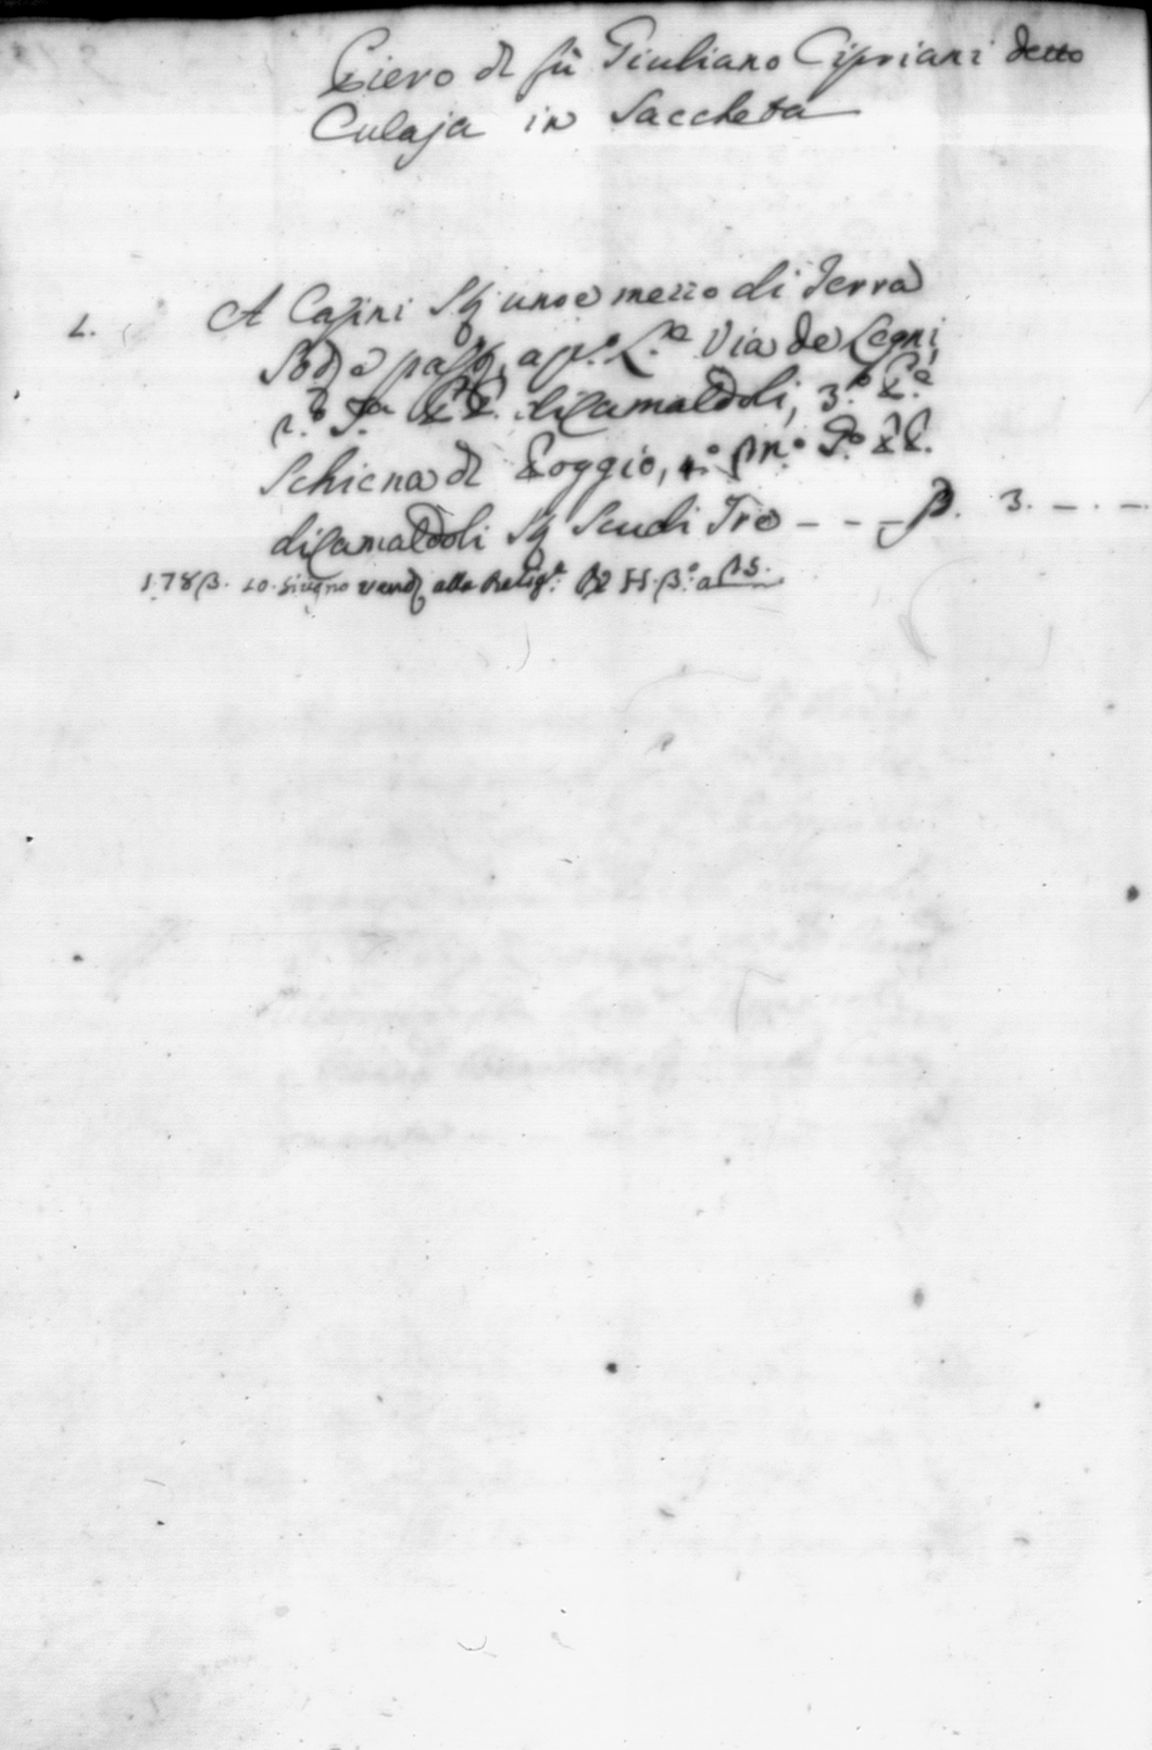 Piero di fù Giuliano Cipriani detto
Culaja in Saccheta
1. A Capini Sq uno e mezzo di Terra
Sod e past, a p.º L.ª Via de Legni,
2.º PP. di Camaldoli, 3.º L.ª
Schiena di Poggio, 4.º PP.
di Camaldoli Sq Scudi Tre - - - 3. - . -
10. Giugno vend alla Relig.e a